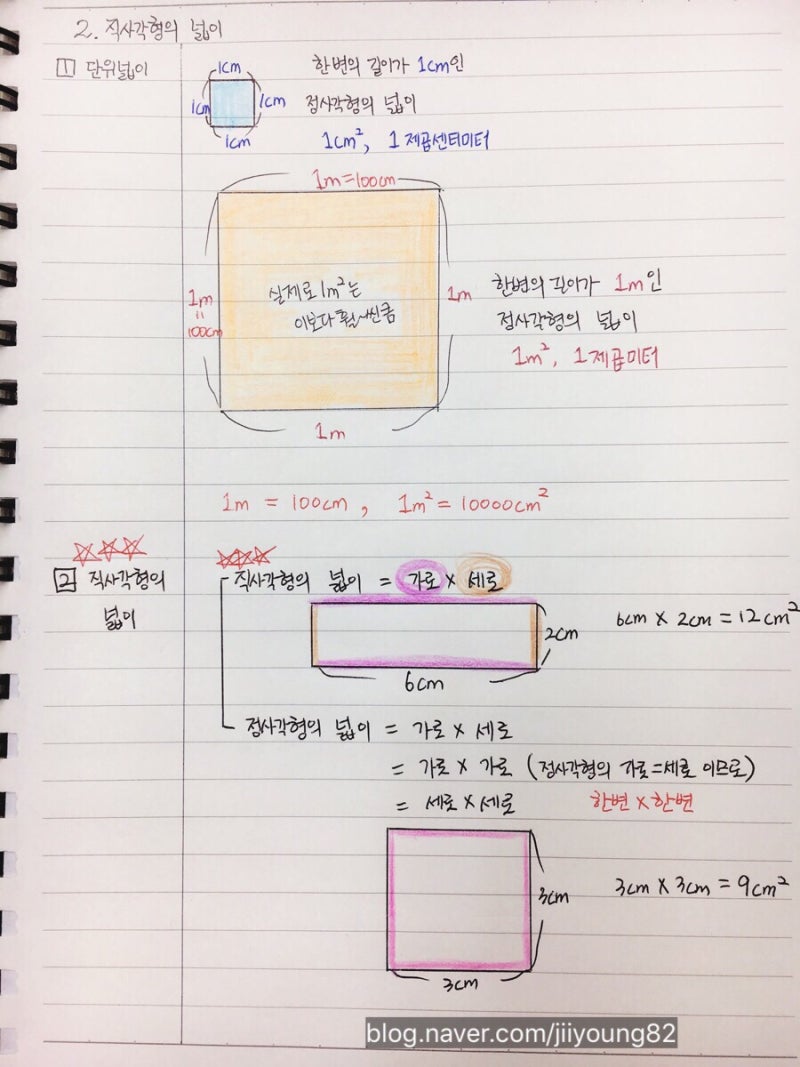 2. 직사각형의 넓이
1 단위넓이
1cm
1cm
1cm
1cm
한변의 길이가 1cm인
정사각형의 넓이
1cm², 1 제곱센티미터
1m=100cm
1m
=
100cm
실제로 1m²는
이보다 훨~씬 큼
1m
1m
한변의 길이가 1m인
정사각형의 넓이
1m², 1제곱미터
1m = 100cm, 1m² = 10000cm²
2 직사각형의
넓이
직사각형의 넓이 = 가로 x 세로
2cm
6cm
6cm x 2cm = 12cm²
정사각형의 넓이 = 가로 x 세로
= 가로 x 가로 (정사각형의 가로=세로 이므로)
= 세로 x 세로 한변 x 한변
3cm
3cm
3cm x 3cm = 9cm²
blog.naver.com/jiiyoung82